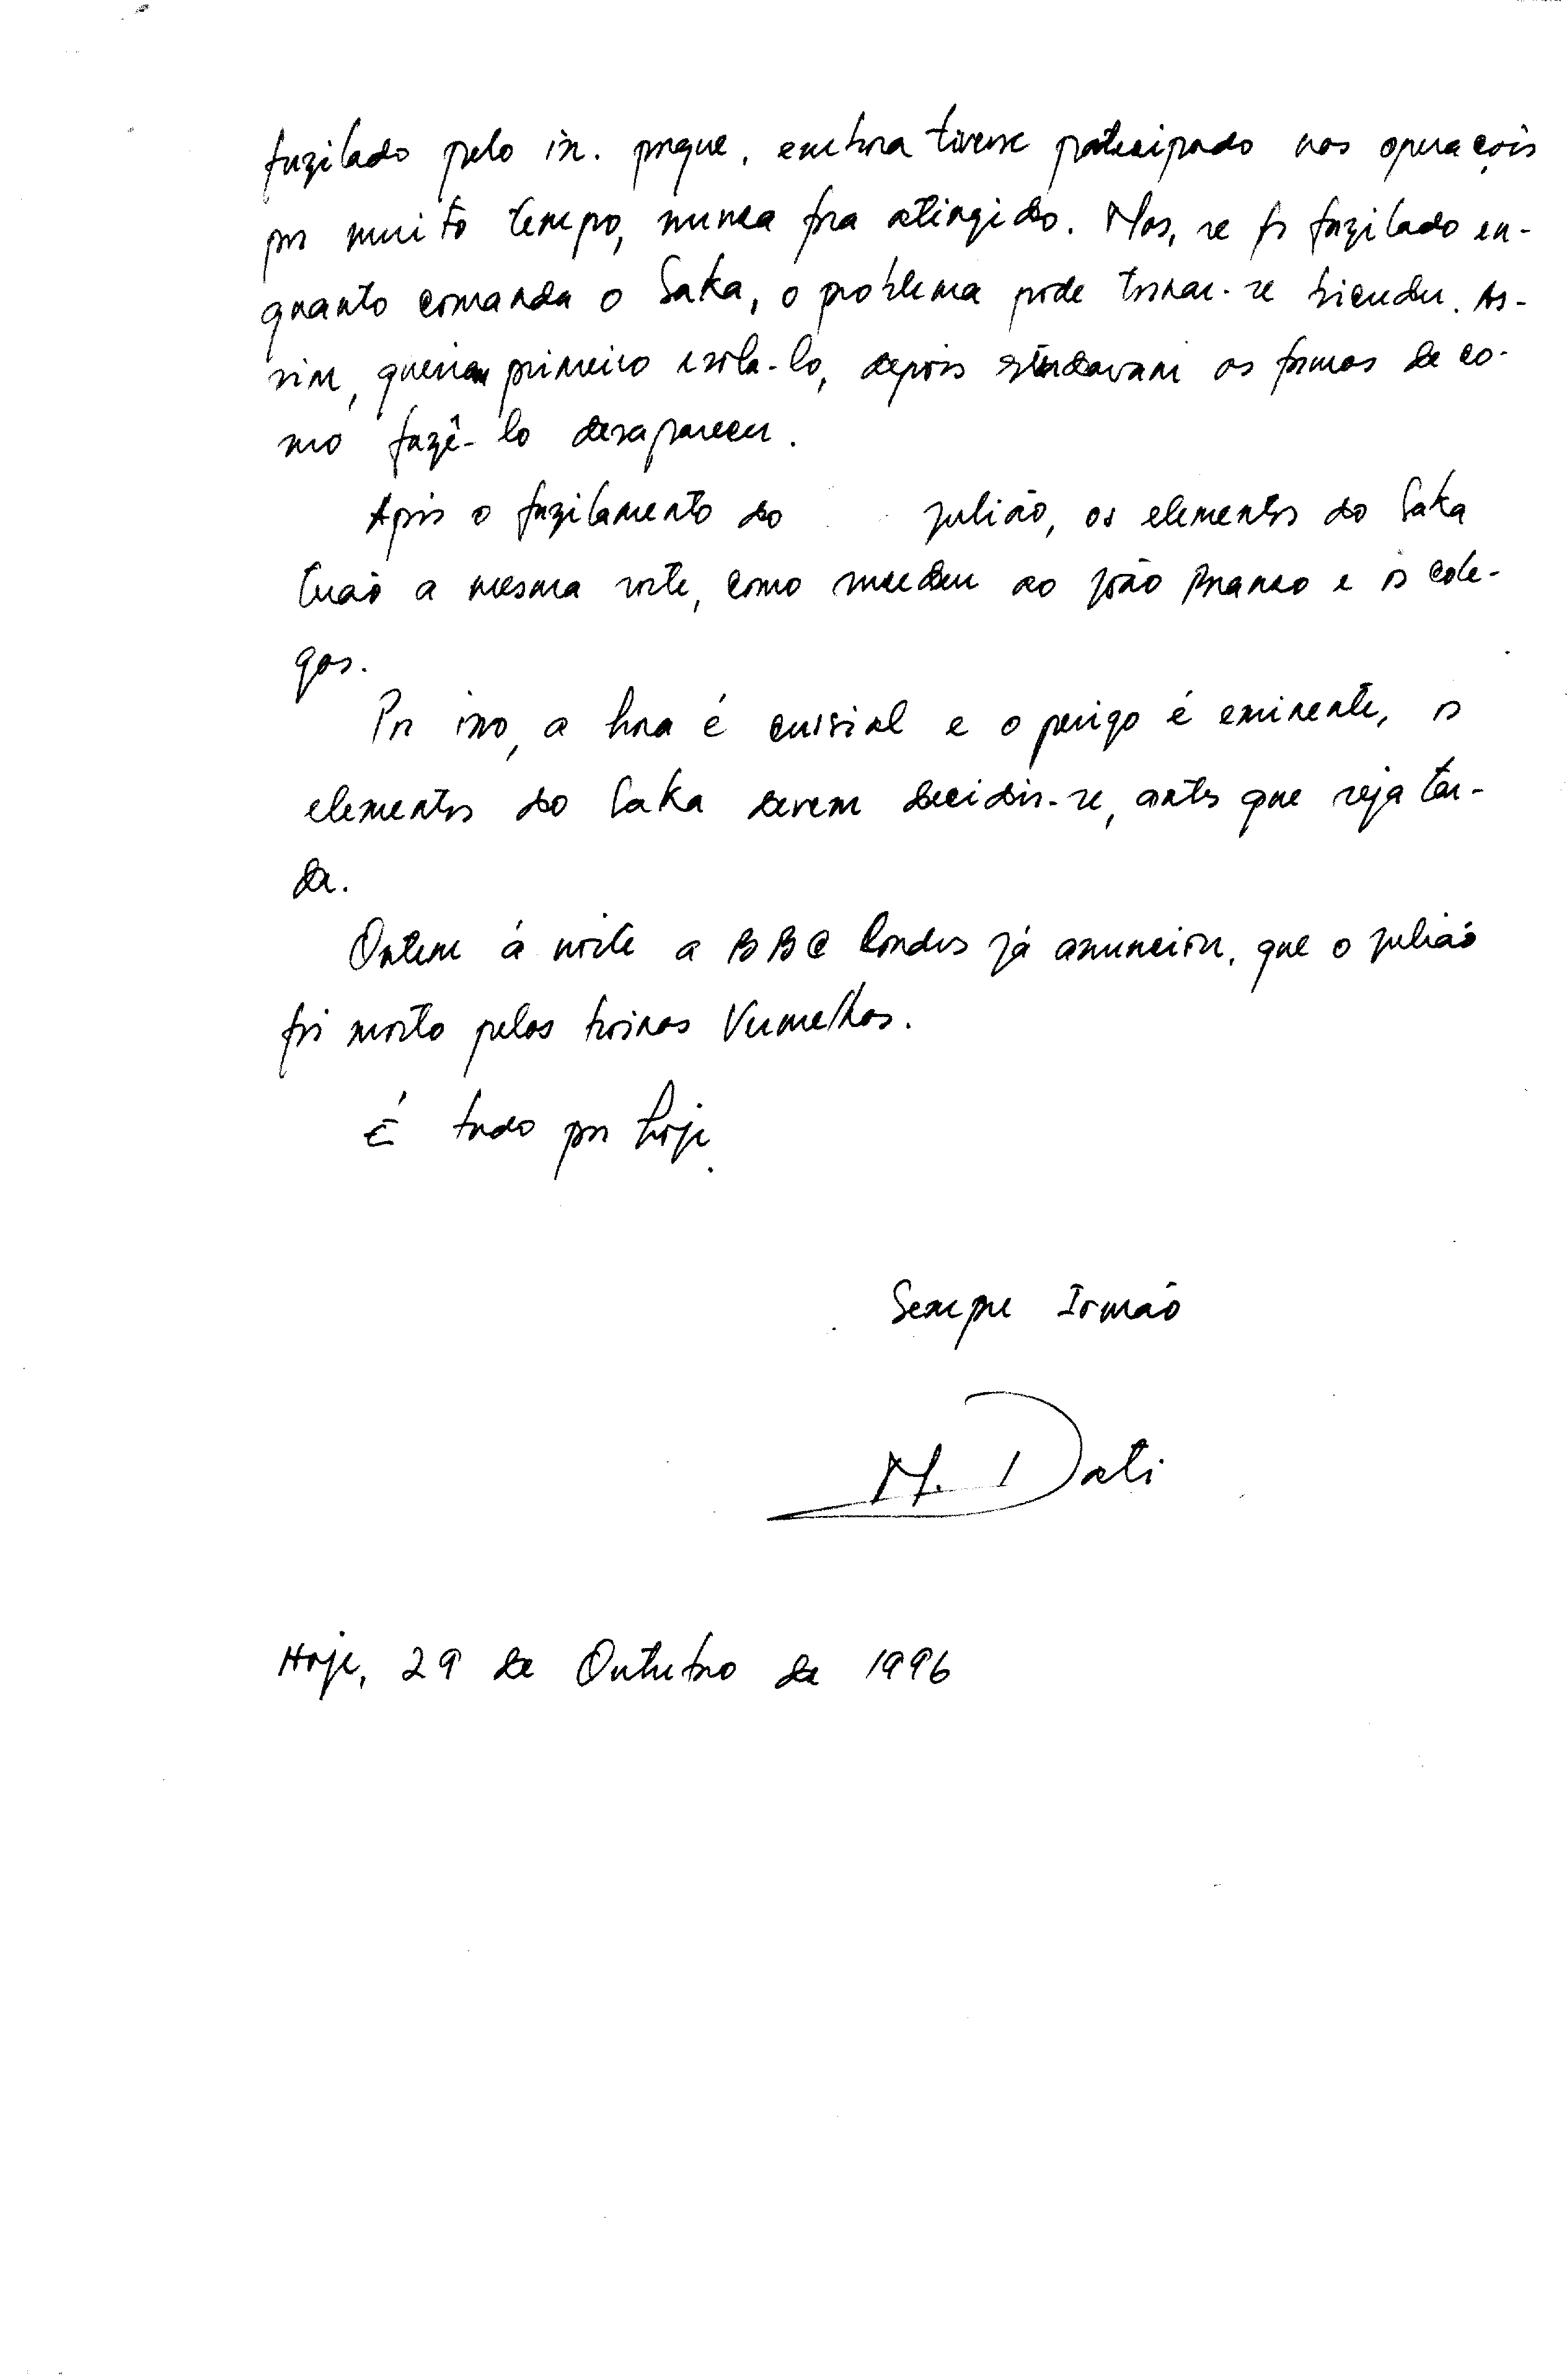 fuzilado pelo in. porque, embora tivesse patecipado nas operações
por muito tempo, nunca fora atingido. Mas, se for fuzilado en-
quanto comanda o Saka, o problema pode tornar-se bicuder. As-
sim, queriam primeiro isola-lo, depois estudavam as formas de co-
mo fazê-lo desaparecer.
Após o fuzilamento do Julião, os elementos do Saka
terão a mesma sorte, como sucedeu ao João Branco e os cole-
gas.
Por isso, a hora é cuisial e o perigo é eminente, os
elementos do Saka devem decidir-se, antes que seja tar-
de.
Ontem á noite a BBC Londres já anunciou, que o Julião
foi morto pelas boinas Vermelhas.
É tudo por hoje.
Sempre Irmão
M. Dati
Hoje, 29 de Outubro de 1996